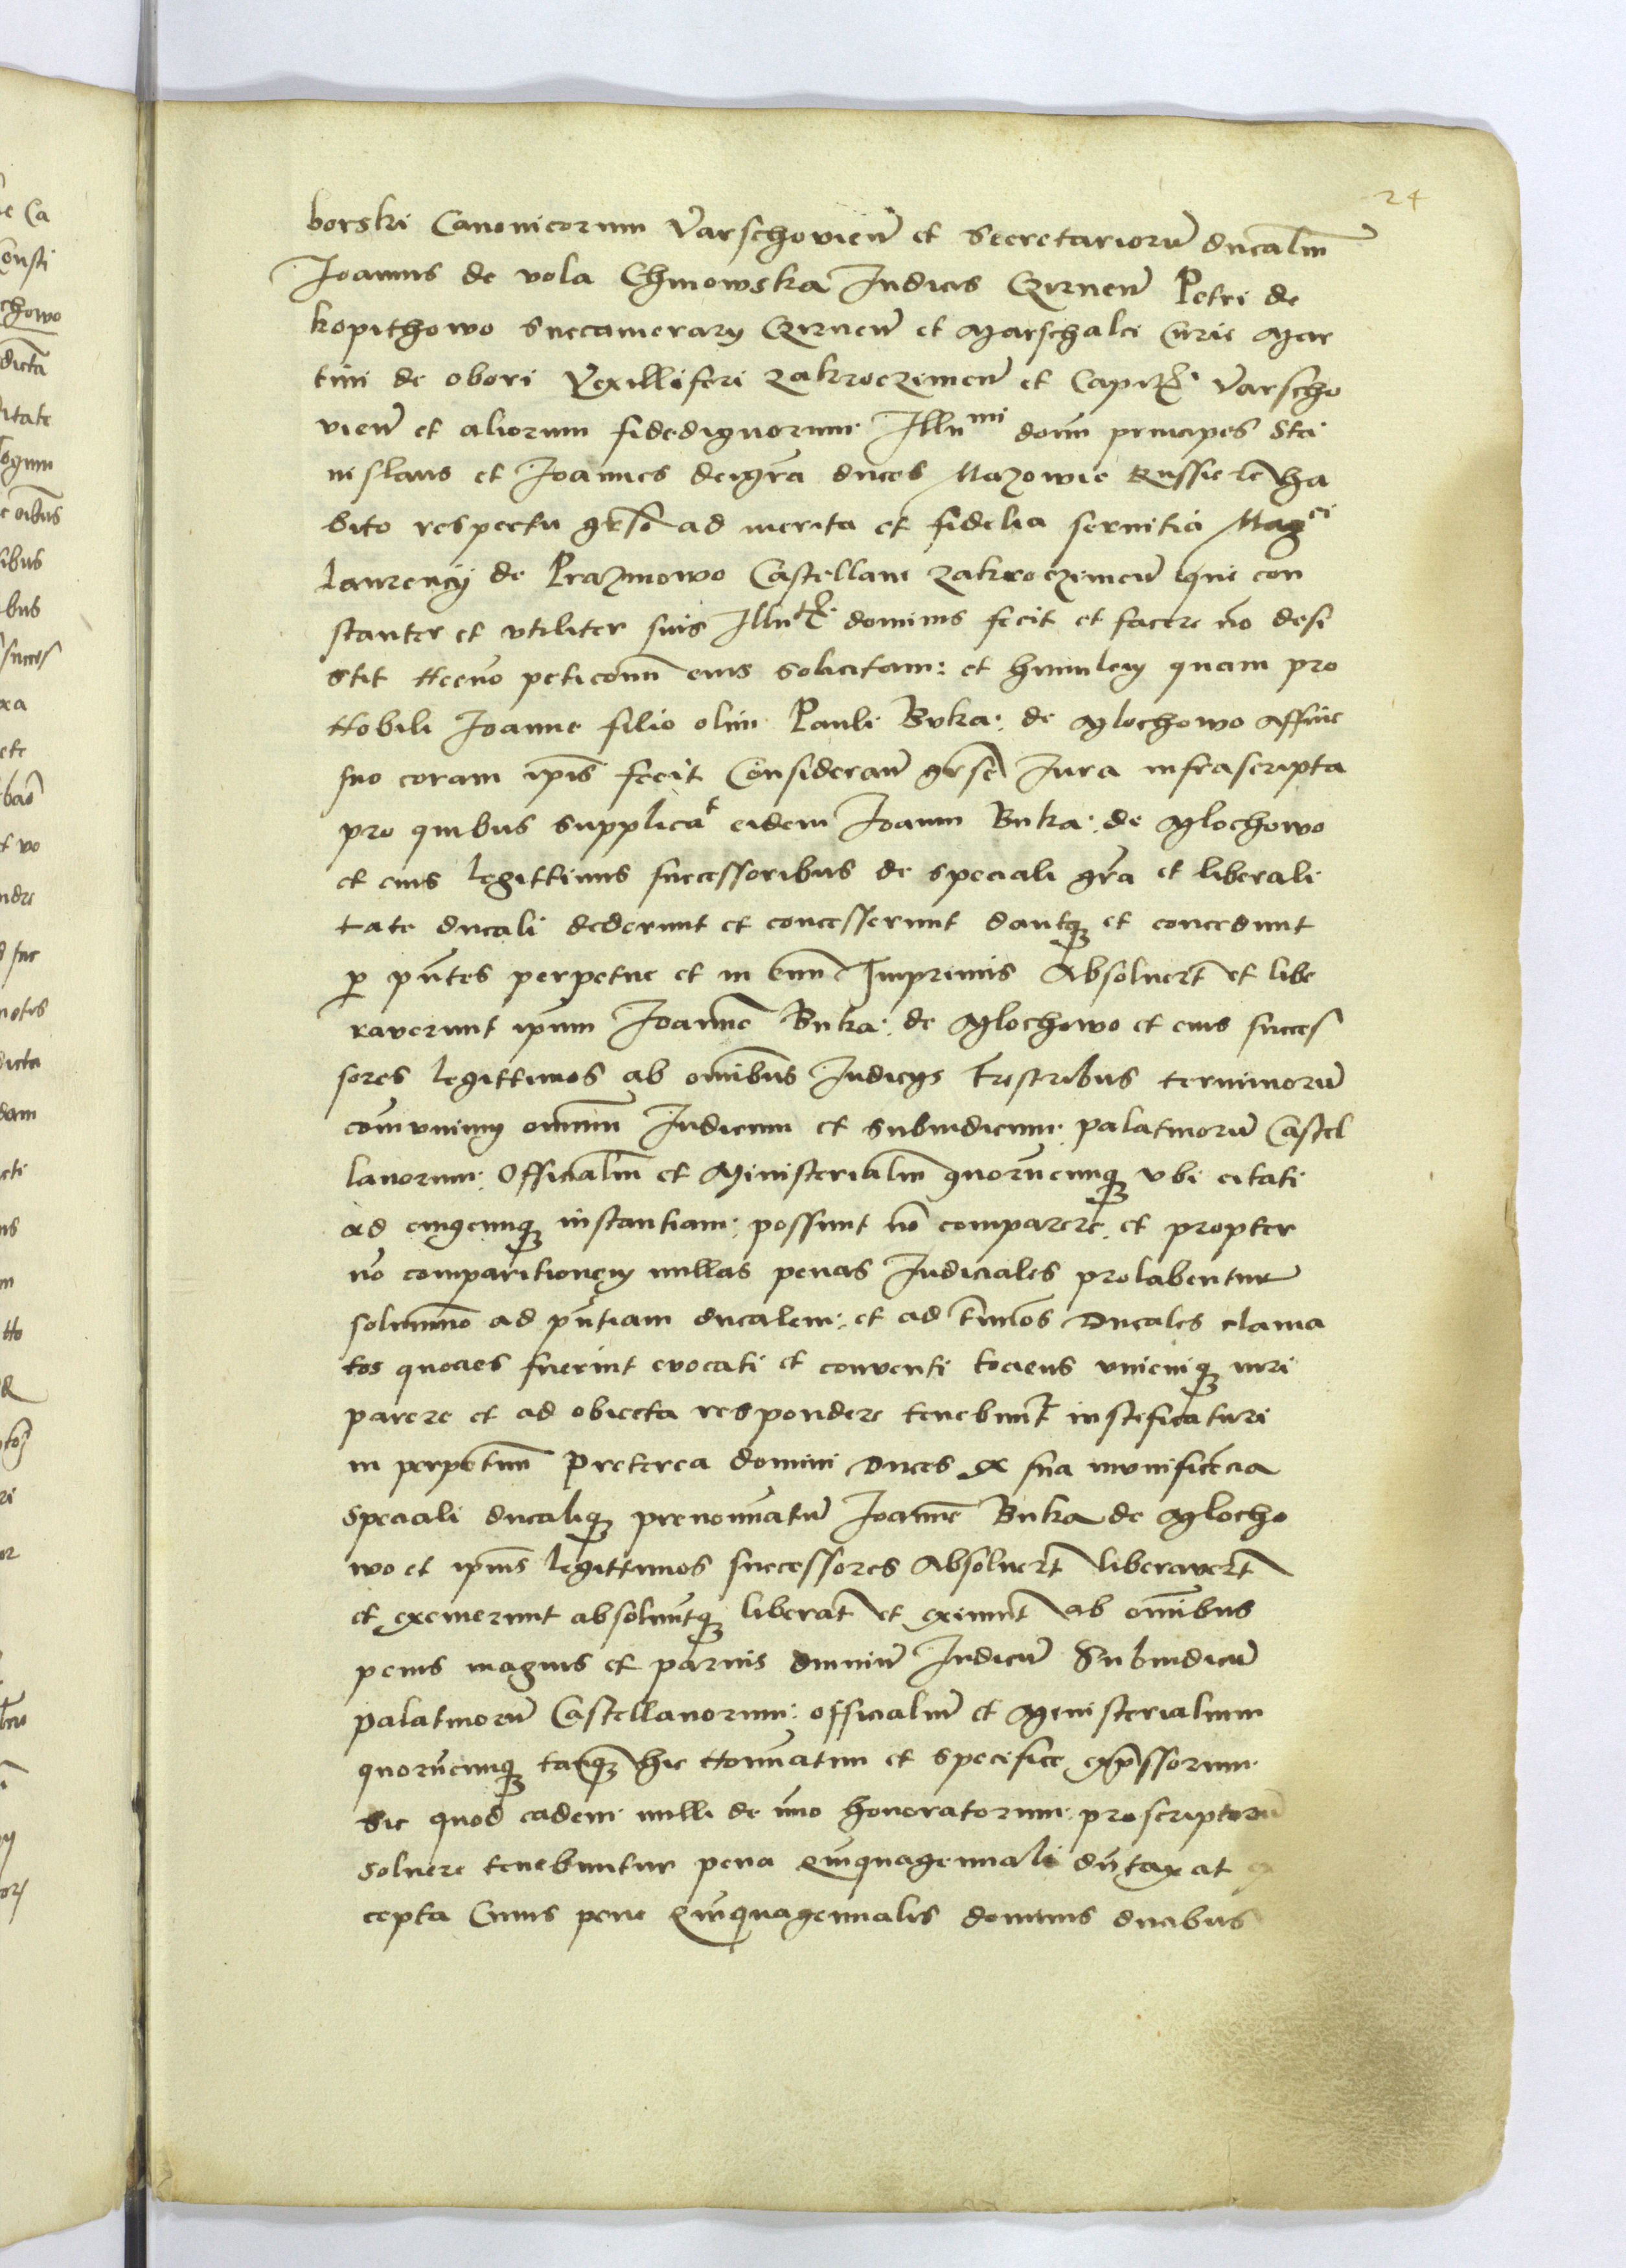 24
borski Canonicorum Varschovień et Secretariorū ducaliū
Joannis de vola Chinowska Judicis Czirneń Petri de
kopithowo Succamerarij Czirneń et Marschalci Curie Mar
tini de obori Vexilliferi Zakroczimeń et Capit. Varscho
vień et aliorum fidedignorum Illumi domī principes Sta
nislaus et Joannes dei gr̄a duces Mazowie Russie etc ha
bito respectu gr̄se ad merita et fidelia servitia Magci
Laurencij de Prazmowo Castellani Zakroczimeń qui con
stanter et vtiliter suis Illu. dominis fecit et facere nō desi
stit Necno peticom̄ eius solicitam et humilem quam pro
Nobili Joanne filio olim Pauli Buka de Mlochowo Affine
suo coram ip̄is fecit Considerań gr̄se Jura infrascripta
pro quibus supplicat eidem Joanni Buka de Mlochowo
et eius legittimis successoribus de speciali gr̄a et liberali
tate ducali dederunt et concesserunt dantq; et concedunt
p p̄ntes perpetue et in evum Imprimis Absoluert̄ et libe
raverunt ip̄um Joannē Buka de Mlochowo et eius succes
sores legittimos ab omībus Judicijs Tr̄estribus terminorū
com̄unium omnium Judicum et Subiudicum palatinorū Castel
lanorum Officialiū et Ministerialiū quorūcunq; vbi citati
ad cuiuscunq; instantiam possunt nō comparere et propter
nō comparitionem nullas penas Judiciales prolabentur
solummō ad p̄ntiam ducalem et ad t̄mīos Ducales clama
tos quocies fuerint evocati et conventi tociens vnicuiq; iuri
parere et ad obiecta respondere tenebunt̄ iusteficaturi
in perpetuum Preterea domini Duces ex sua munificēcia
speciali ducaliq; prenoīatū Joannē Buka de Mlocho
wo et ip̄ius legittimos successores Absoluert̄ liberavert̄
et exemerunt absoluūtq; liberāt et eximūt ab omībus
penis magnis et parvis omniū Judicū Subiudicū
palatinorū Castellanorum officialiū et Ministerialium
quorūcunq; tanq; hic Nomīatim et specifice exp̄ssorum
Sic quod eadem nulli de imo honoratorum proscriptorū
soluere tenebuntur pena Quinquagennali dūtaxat ex
cepta Cuius pene Quinquagennalis dominis ducibus